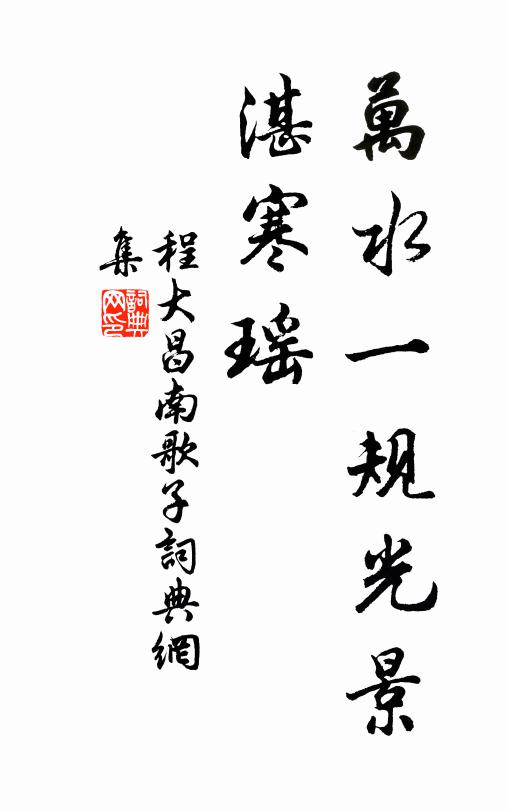 萬水一規光景
湛寒瑶
程大昌南歌子詞典網
集
詞典网印